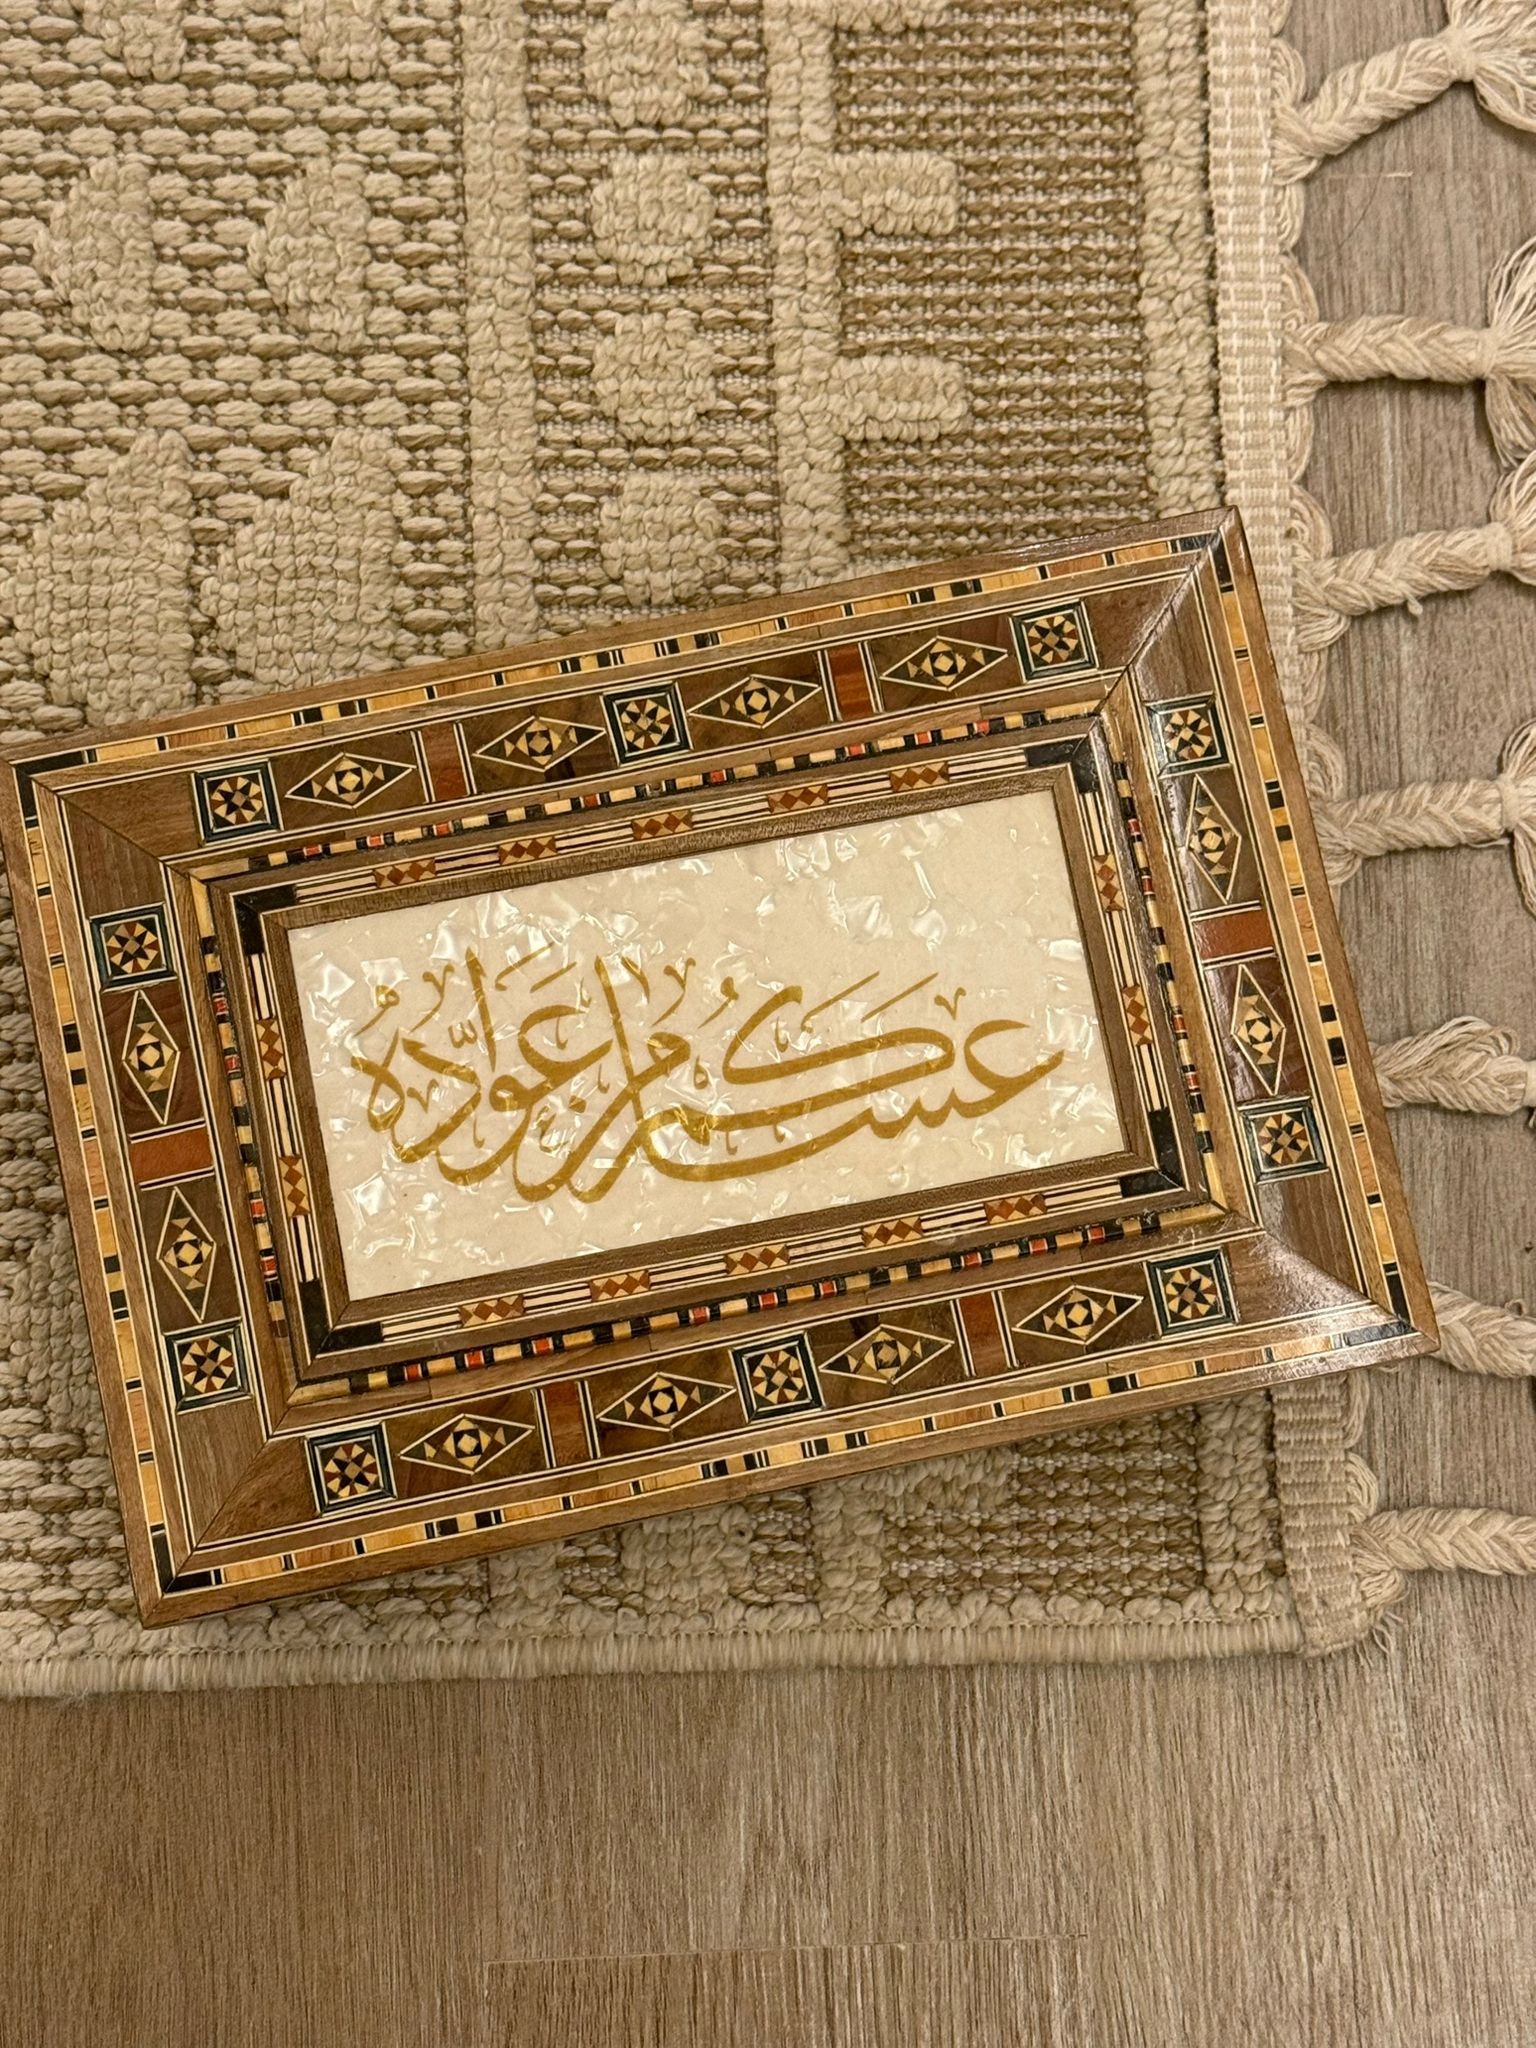 عساكم من عوّاده